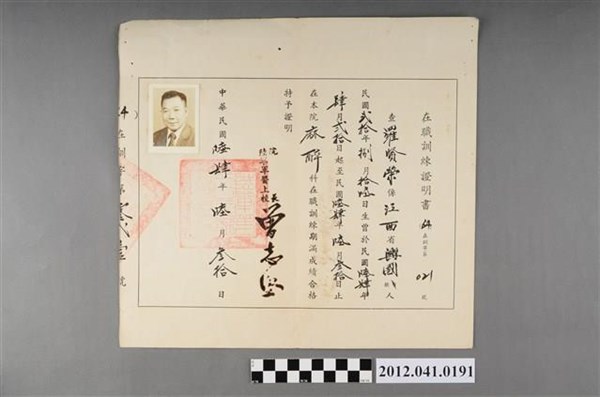 在職訓練證明書 64在訓字第021號
查羅賢榮係江西省興國縣人
民國貳拾年捌月拾陸日生曾於民國陸肆年
肆月貳拾日起至民國陸肆年陸月叁拾日止
在本院麻醉科在職訓練期滿成績合格
特予證明
院長
陸軍軍醫上校曾志
中華民國陸肆年陸月叁拾日
64在訓字第 號
2012.041.0191